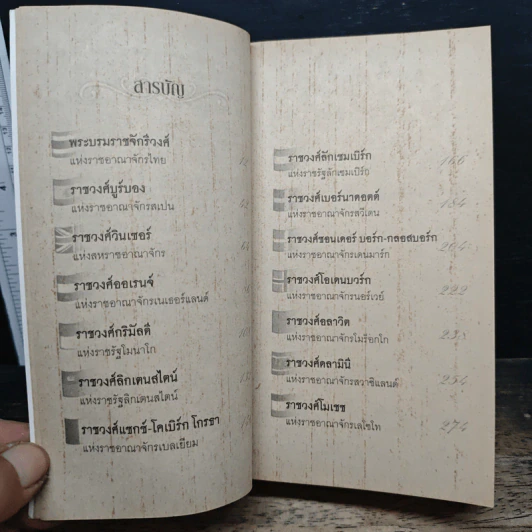 สารบัญ
พระบรมราชจักรีวงศ์
แห่งราชอาณาจักรไทย
ราชวงศ์บูร์บอง
แห่งราชอาณาจักรสเปน
ราชวงศ์วินเซอร์
แห่งสหราชอาณาจักร
ราชวงศ์ออเรนจ์
แห่งราชอาณาจักรเนเธอร์แลนด์
ราชวงศ์กริมัลดี
แห่งราชรัฐโมนาโก
ราชวงศ์ลิกเตนสไตน์
แห่งราชรัฐลิกเตนสไตน์
ราชวงศ์แซกซ์-โคเบิร์ก โกธา
แห่งราชอาณาจักรเบลเยียม
ราชวงศ์ลักเซมเบิร์ก
แห่งราชรัฐลักเซมเบิร์ก
166
ราชวงศ์เบอร์นาดอตต์
แห่งราชอาณาจักรสวีเดน
184
ราชวงศ์ซอนเดอร์ บอร์ก-กลอสบอร์ก
แห่งราชอาณาจักรเดนมาร์ก
204
ราชวงศ์โอเดนบวร์ก
แห่งราชอาณาจักรนอร์เวย์
222
ราชวงศ์อลาวิต
แห่งราชอาณาจักรโมร็อกโก
ราชวงศ์ดลามินี
แห่งราชอาณาจักรสวาซิแลนด์
254
ราชวงศ์โมเชช
แห่งราชอาณาจักรเลโซโท
274